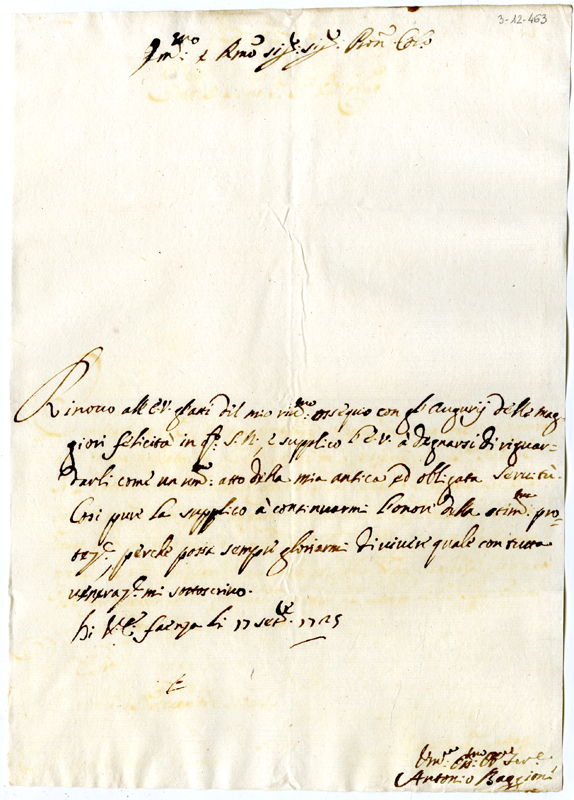 3-12-463
Em.mo e Rmo sig.r sig.r Pron Col.o
Rinovo all'E.V. gl'atti del mio riv.mo ossequio con gl'Augurij delle mag-
giori felicità in q.e S. N., e supplico l'E.V. à degnarsi di riguar-
darli come un um.mo atto della mia antica ed obligata servitù.
Così pure la supplico à continuarmi l'onore della stim.ma pro-
tez.e, perche possa sempre gloriarmi di vivere quale con tutta
veneraz.e mi sottoscrivo.
Di V.E. faenza li 17 set.e 1725
Um.mo Dev.mo Obb.mo Ser.e
Antonio Baggioni